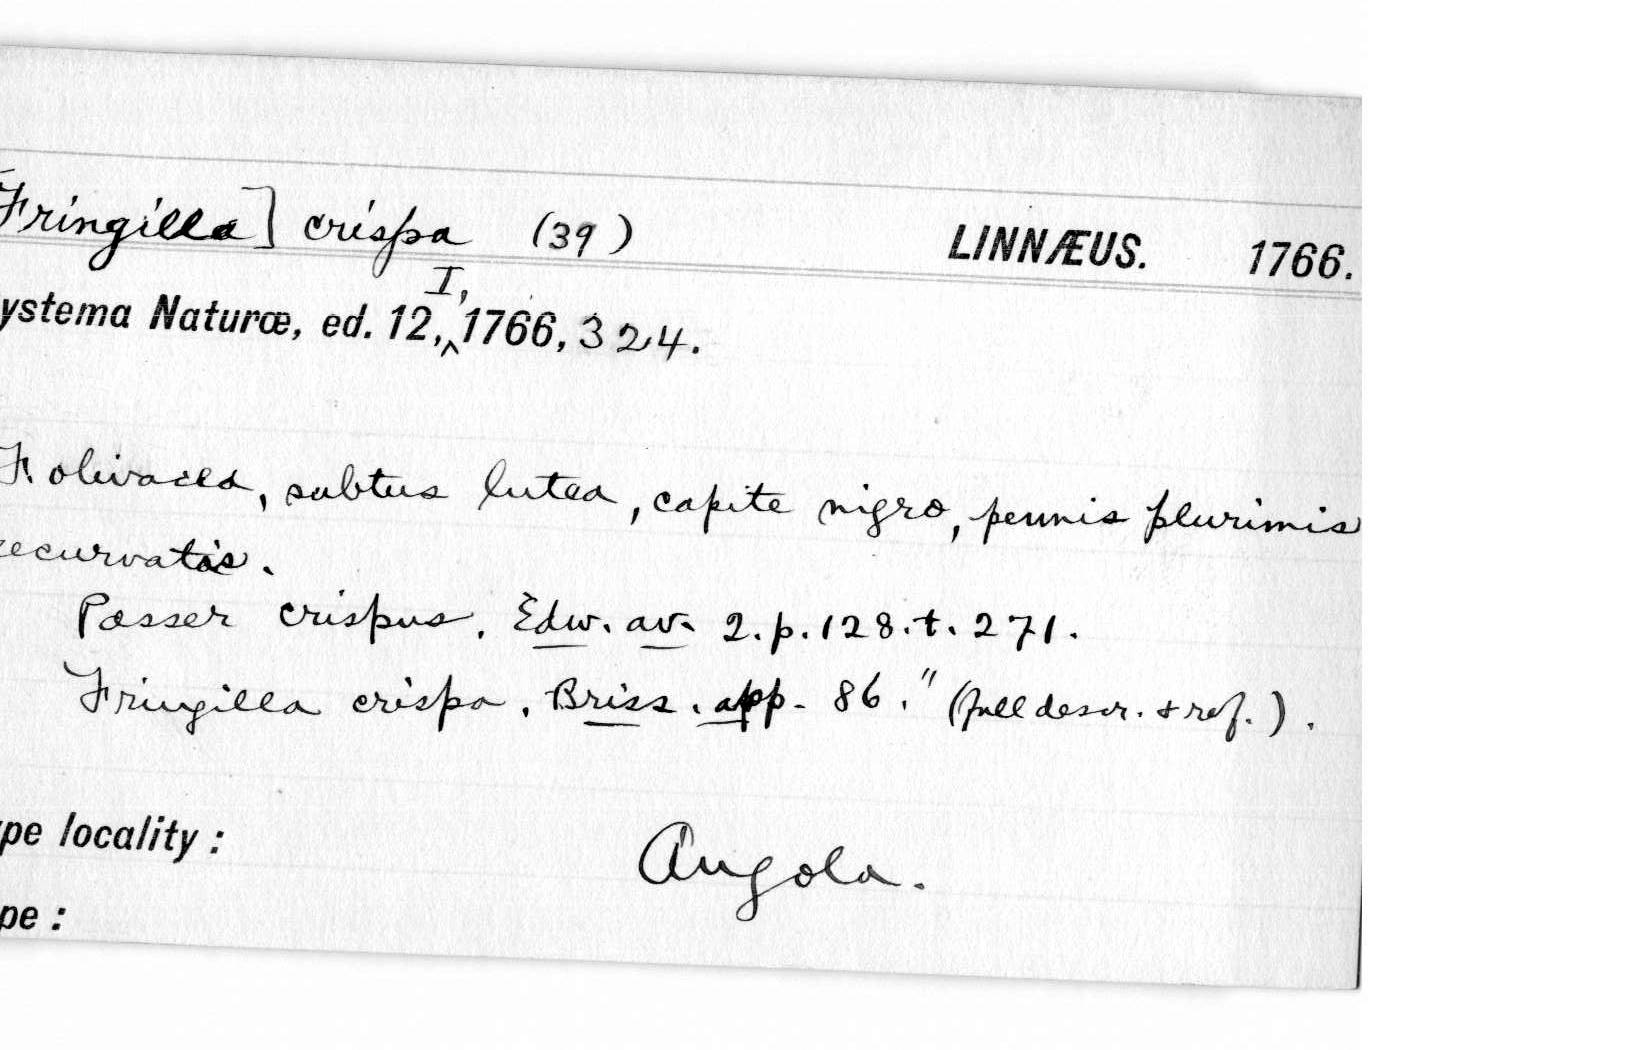 Fringilla] crispa (39) LINNÆUS. 1766.
ystema Naturæ, ed. 12, I, 1766, 324.
F. olivacea, subtus lutea, capite nigro, pennis plurimis
recurvatis.
Passer crispus. Edw. av. 2. p. 128. t. 271.
Fringilla crispa. Briss. app. 86." (full descr. & ref.).
ype locality : Angola.
pe :